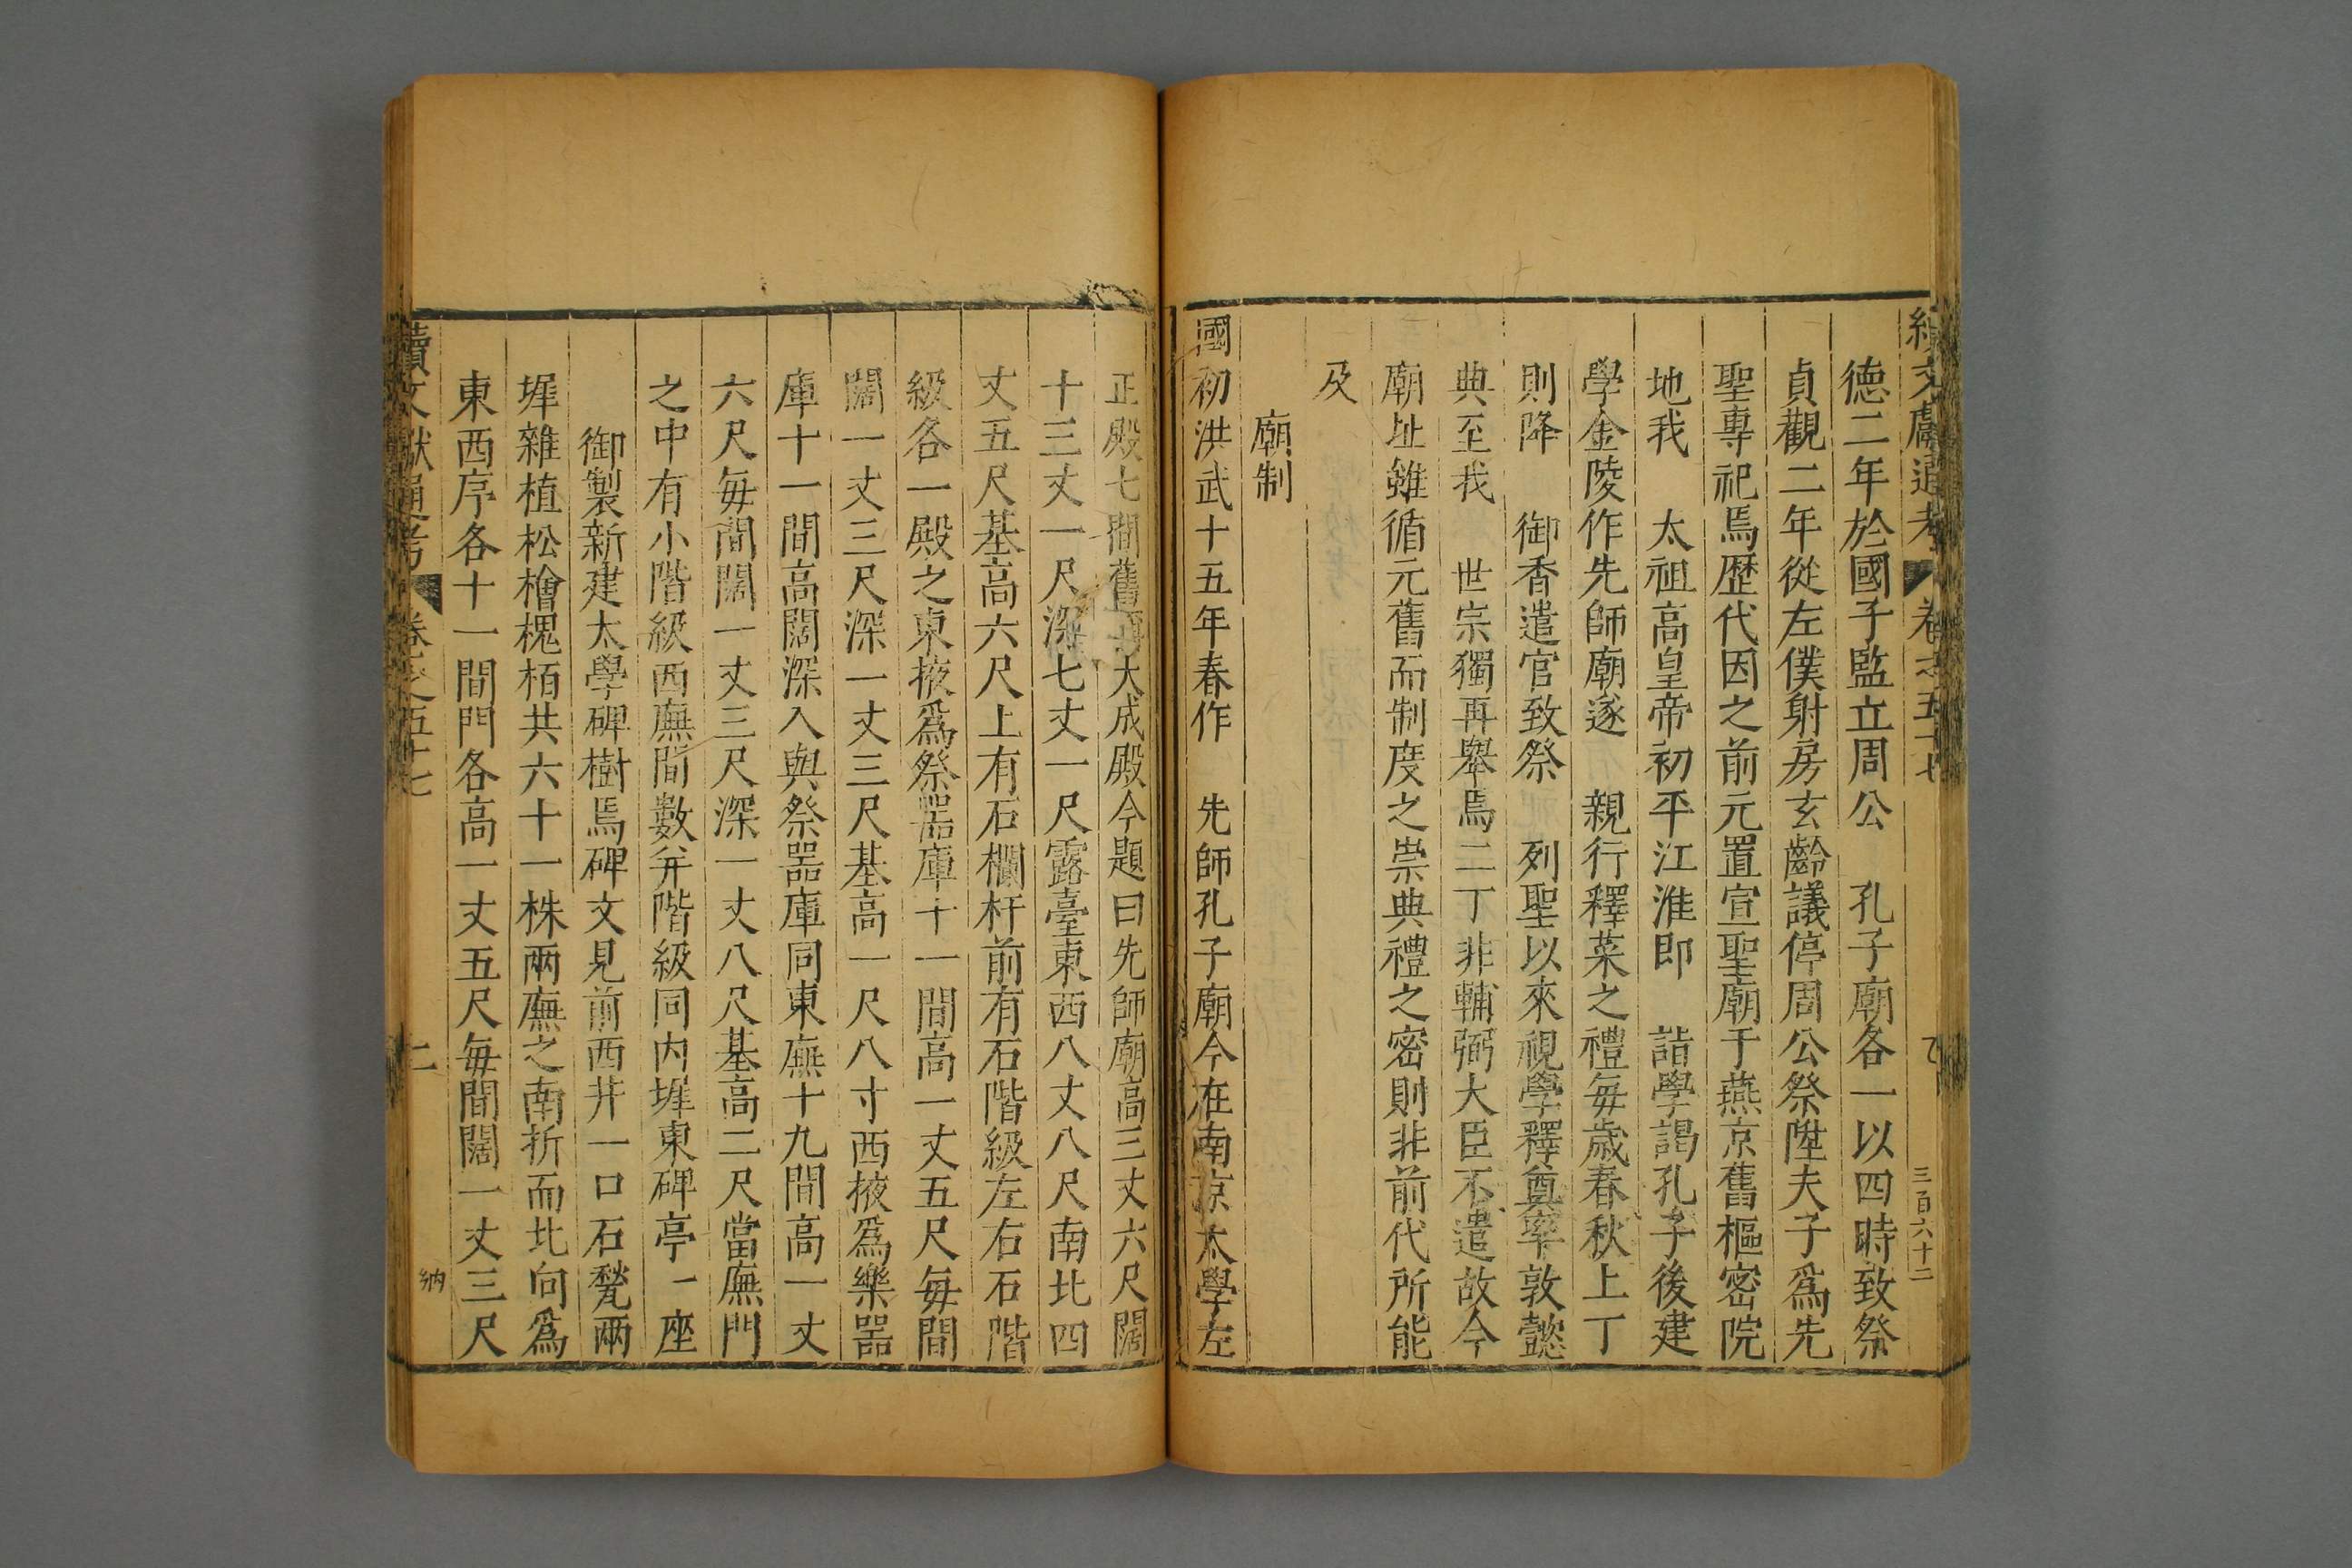 續文獻通考 卷之五十七 三百六十二
德二年於國子監立周公 孔子廟各一以四時致祭
貞觀二年從左僕射房玄齡議停周公祭陞夫子爲先
聖專祀焉歷代因之前元置宣聖廟于燕京舊樞密院
地我 太祖高皇帝初平江淮即 詣學謁孔子後建
學金陵作先師廟遂 親行釋菜之禮每歲春秋上丁
則降 御香遣官致祭 列聖以來視學釋奠率敦懿
典至我 世宗獨再舉焉二丁非輔弼大臣不遣故今
廟址雖循元舊而制度之崇典禮之密則非前代所能
及
廟制
國初洪武十五年春作 先師孔子廟今在南京太學左
正殿七間舊大成殿今題曰先師廟高三丈六尺闊
十三丈一尺深七丈一尺露臺東西八丈八尺南北四
丈五尺基高六尺上有石欄杆前有石階級左右石階
級各一殿之東掖爲祭器庫十一間高一丈五尺每間
闊一丈三尺深一丈三尺基高一尺八寸西掖爲樂器
庫十一間高闊深入與祭器庫同東廡十九間高一丈
六尺每間闊一丈三尺深一丈八尺基高二尺當廡門
之中有小階級西廡間數并階級同内墀東碑亭一座
御製新建太學碑樹焉碑文見前西井一口石甃兩
墀雜植松檜槐栢共六十一株兩廡之南折而北向爲
東西序各十一間門各高一丈五尺每間闊一丈三尺
續文獻通考 卷之五十七 二 納